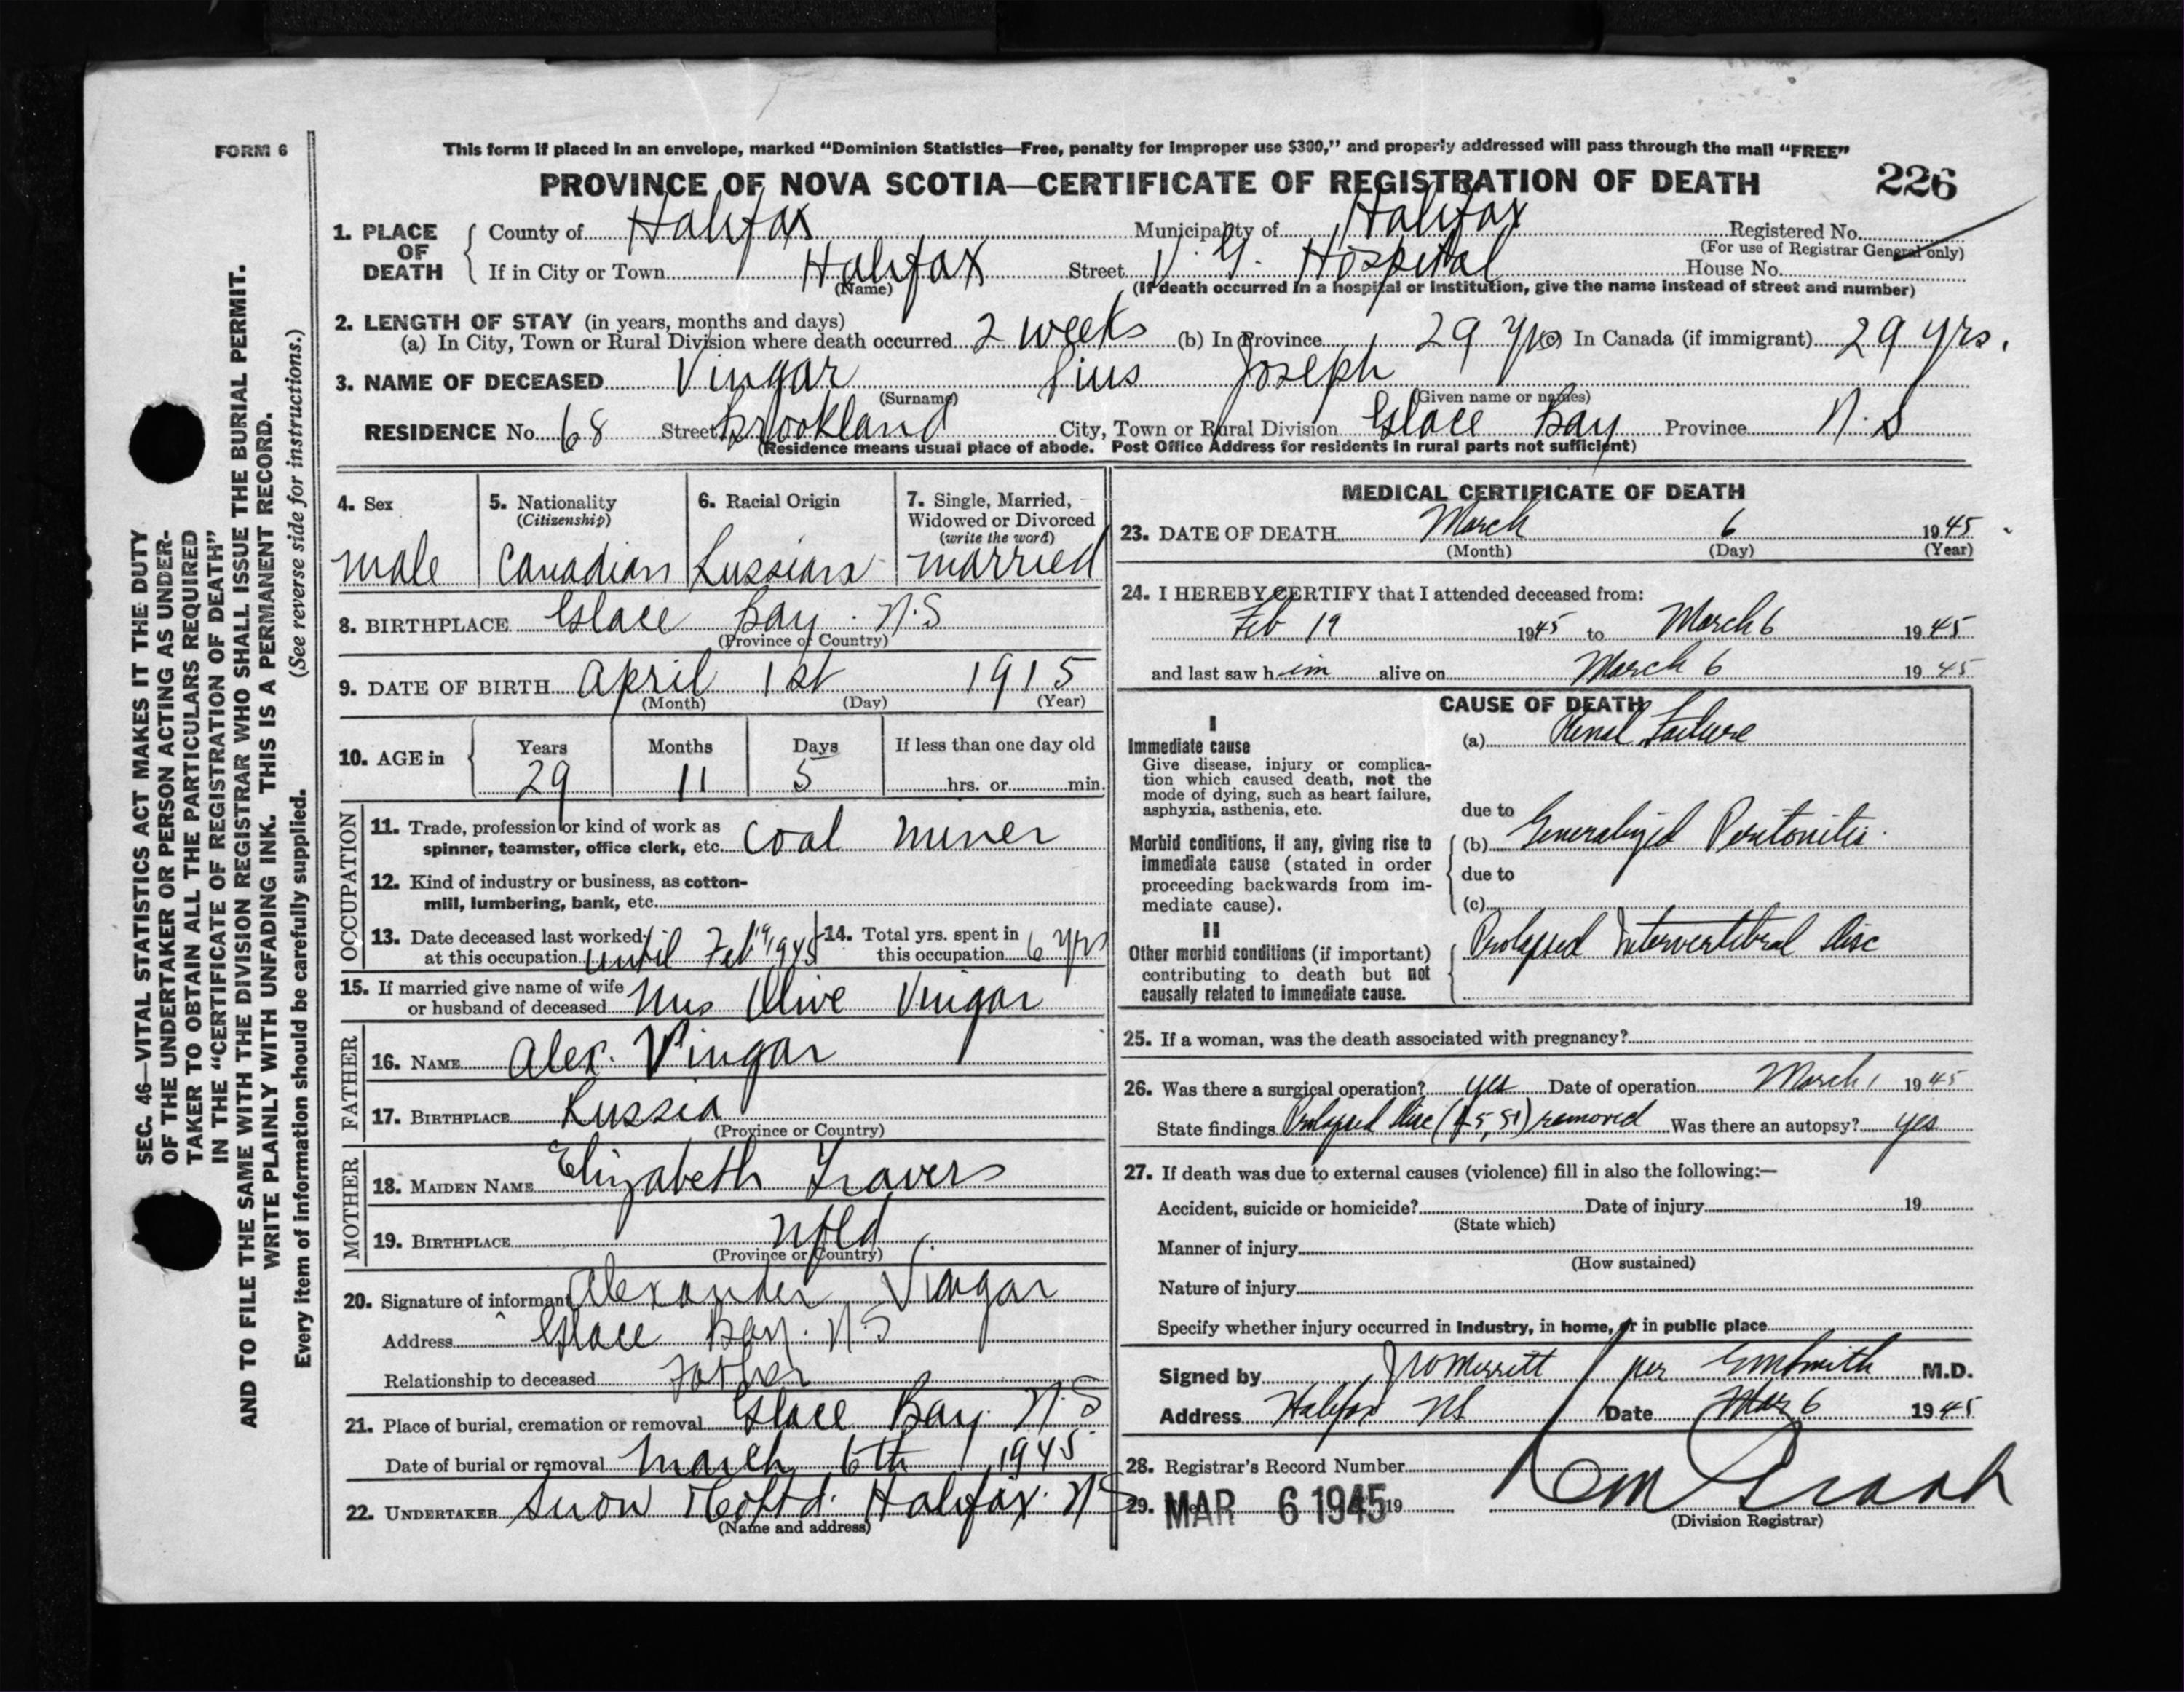 FORM 6
This form if placed in an envelope, marked "Dominion Statistics—Free, penalty for improper use $300," and properly addressed will pass through the mail "FREE"
PROVINCE OF NOVA SCOTIA—CERTIFICATE OF REGISTRATION OF DEATH 226
1. PLACE OF DEATH County of Halifax Municipality of Halifax Registered No.
(For use of Registrar General only)
If in City or Town Halifax Street V. G. Hospital House No.
(Name) (If death occurred in a hospital or institution, give the name instead of street and number)
2. LENGTH OF STAY (in years, months and days)
(a) In City, Town or Rural Division where death occurred 2 weeks (b) In Province 29 yrs (c) In Canada (if immigrant) 29 yrs.
3. NAME OF DECEASED Vingar Pius Joseph
(Surname) (Given name or names)
RESIDENCE No. 68 Street Brookland City, Town or Rural Division Glace Bay Province N. S
(Residence means usual place of abode. Post Office Address for residents in rural parts not sufficient)
4. Sex 5. Nationality 6. Racial Origin 7. Single, Married,
(Citizenship) Widowed or Divorced
(write the word)
male Canadian Russian married
8. BIRTHPLACE Glace Bay. N.S
(Province or Country)
9. DATE OF BIRTH April 1st 1915
(Month) (Day) (Year)
10. AGE in Years Months Days If less than one day old
29 11 5 hrs. or min.
OCCUPATION
11. Trade, profession or kind of work as
spinner, teamster, office clerk, etc. Coal miner
12. Kind of industry or business, as cotton-
mill, lumbering, bank, etc.
13. Date deceased last worked
at this occupation until Feb 19 1945
14. Total yrs. spent in
this occupation 6 yrs
15. If married give name of wife
or husband of deceased Mrs Olive Vingar
FATHER
16. NAME Alex. Vingar
17. BIRTHPLACE Russia
(Province or Country)
MOTHER
18. MAIDEN NAME Elizabeth Travers
19. BIRTHPLACE Nfld.
(Province or Country)
20. Signature of informant Alexander Vingar
Address Glace Bay. N.S
Relationship to deceased Father
21. Place of burial, cremation or removal Glace Bay. N.S
Date of burial or removal March 6th 1945.
22. UNDERTAKER Snow & Co Ltd. Halifax. N S
(Name and address)
MEDICAL CERTIFICATE OF DEATH
23. DATE OF DEATH March 6 1945
(Month) (Day) (Year)
24. I HEREBY CERTIFY that I attended deceased from:
Feb 19 1945 to March 6 1945
and last saw him alive on March 6 1945
CAUSE OF DEATH
I
Immediate cause (a) Renal Failure
Give disease, injury or complica-
tion which caused death, not the
mode of dying, such as heart failure,
asphyxia, asthenia, etc.
due to
Morbid conditions, if any, giving rise to
immediate cause (stated in order
proceeding backwards from im-
mediate cause).
(b) Generalized Peritonitis.
due to
(c)
II
Other morbid conditions (if important)
contributing to death but not
causally related to immediate cause.
Prolapsed Intervertebral Disc
25. If a woman, was the death associated with pregnancy?
26. Was there a surgical operation? yes Date of operation March 1 1945
State findings Prolapsed Disc (L5, S1) removed Was there an autopsy? yes
27. If death was due to external causes (violence) fill in also the following:—
Accident, suicide or homicide? Date of injury 19
(State which)
Manner of injury
(How sustained)
Nature of injury
Specify whether injury occurred in industry, in home, or in public place
Signed by J W Merritt / per M.D.
Address Halifax NS Date Mar 6 1945
28. Registrar's Record Number
29. MAR 6 1945 19
(Division Registrar)
SEC. 46—VITAL STATISTICS ACT MAKES IT THE DUTY
OF THE UNDERTAKER OR PERSON ACTING AS UNDER-
TAKER TO OBTAIN ALL THE PARTICULARS REQUIRED
IN THE "CERTIFICATE OF REGISTRATION OF DEATH"
AND TO FILE THE SAME WITH THE DIVISION REGISTRAR WHO SHALL ISSUE THE BURIAL PERMIT.
WRITE PLAINLY WITH UNFADING INK. THIS IS A PERMANENT RECORD.
Every item of information should be carefully supplied. (See reverse side for instructions.)